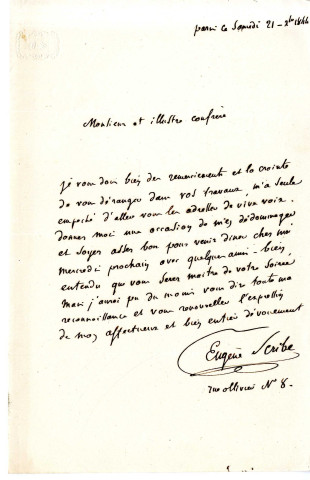 paris ce Samedi 21 - Xbre 1844
Monsieur et illustre confrère
je vous dois bien des remerciements et la crainte
de vous déranger dans vos travaux, m'a seule
empeché d'aller vous les adresser de vive voix.
donnez moi une occasion de m'en dédommager
et soyez assez bon pour venir diner chez moi
mercredi prochain avec quelques amis - bien
entendu que vous serez maitre de votre soirée,
mais j'aurai pu du moins vous dire toute ma
reconnaissance et vous renouveller l'expression
de mon affectueux et bien entier dévouement
Eugène Scribe
rue olivier N° 8.